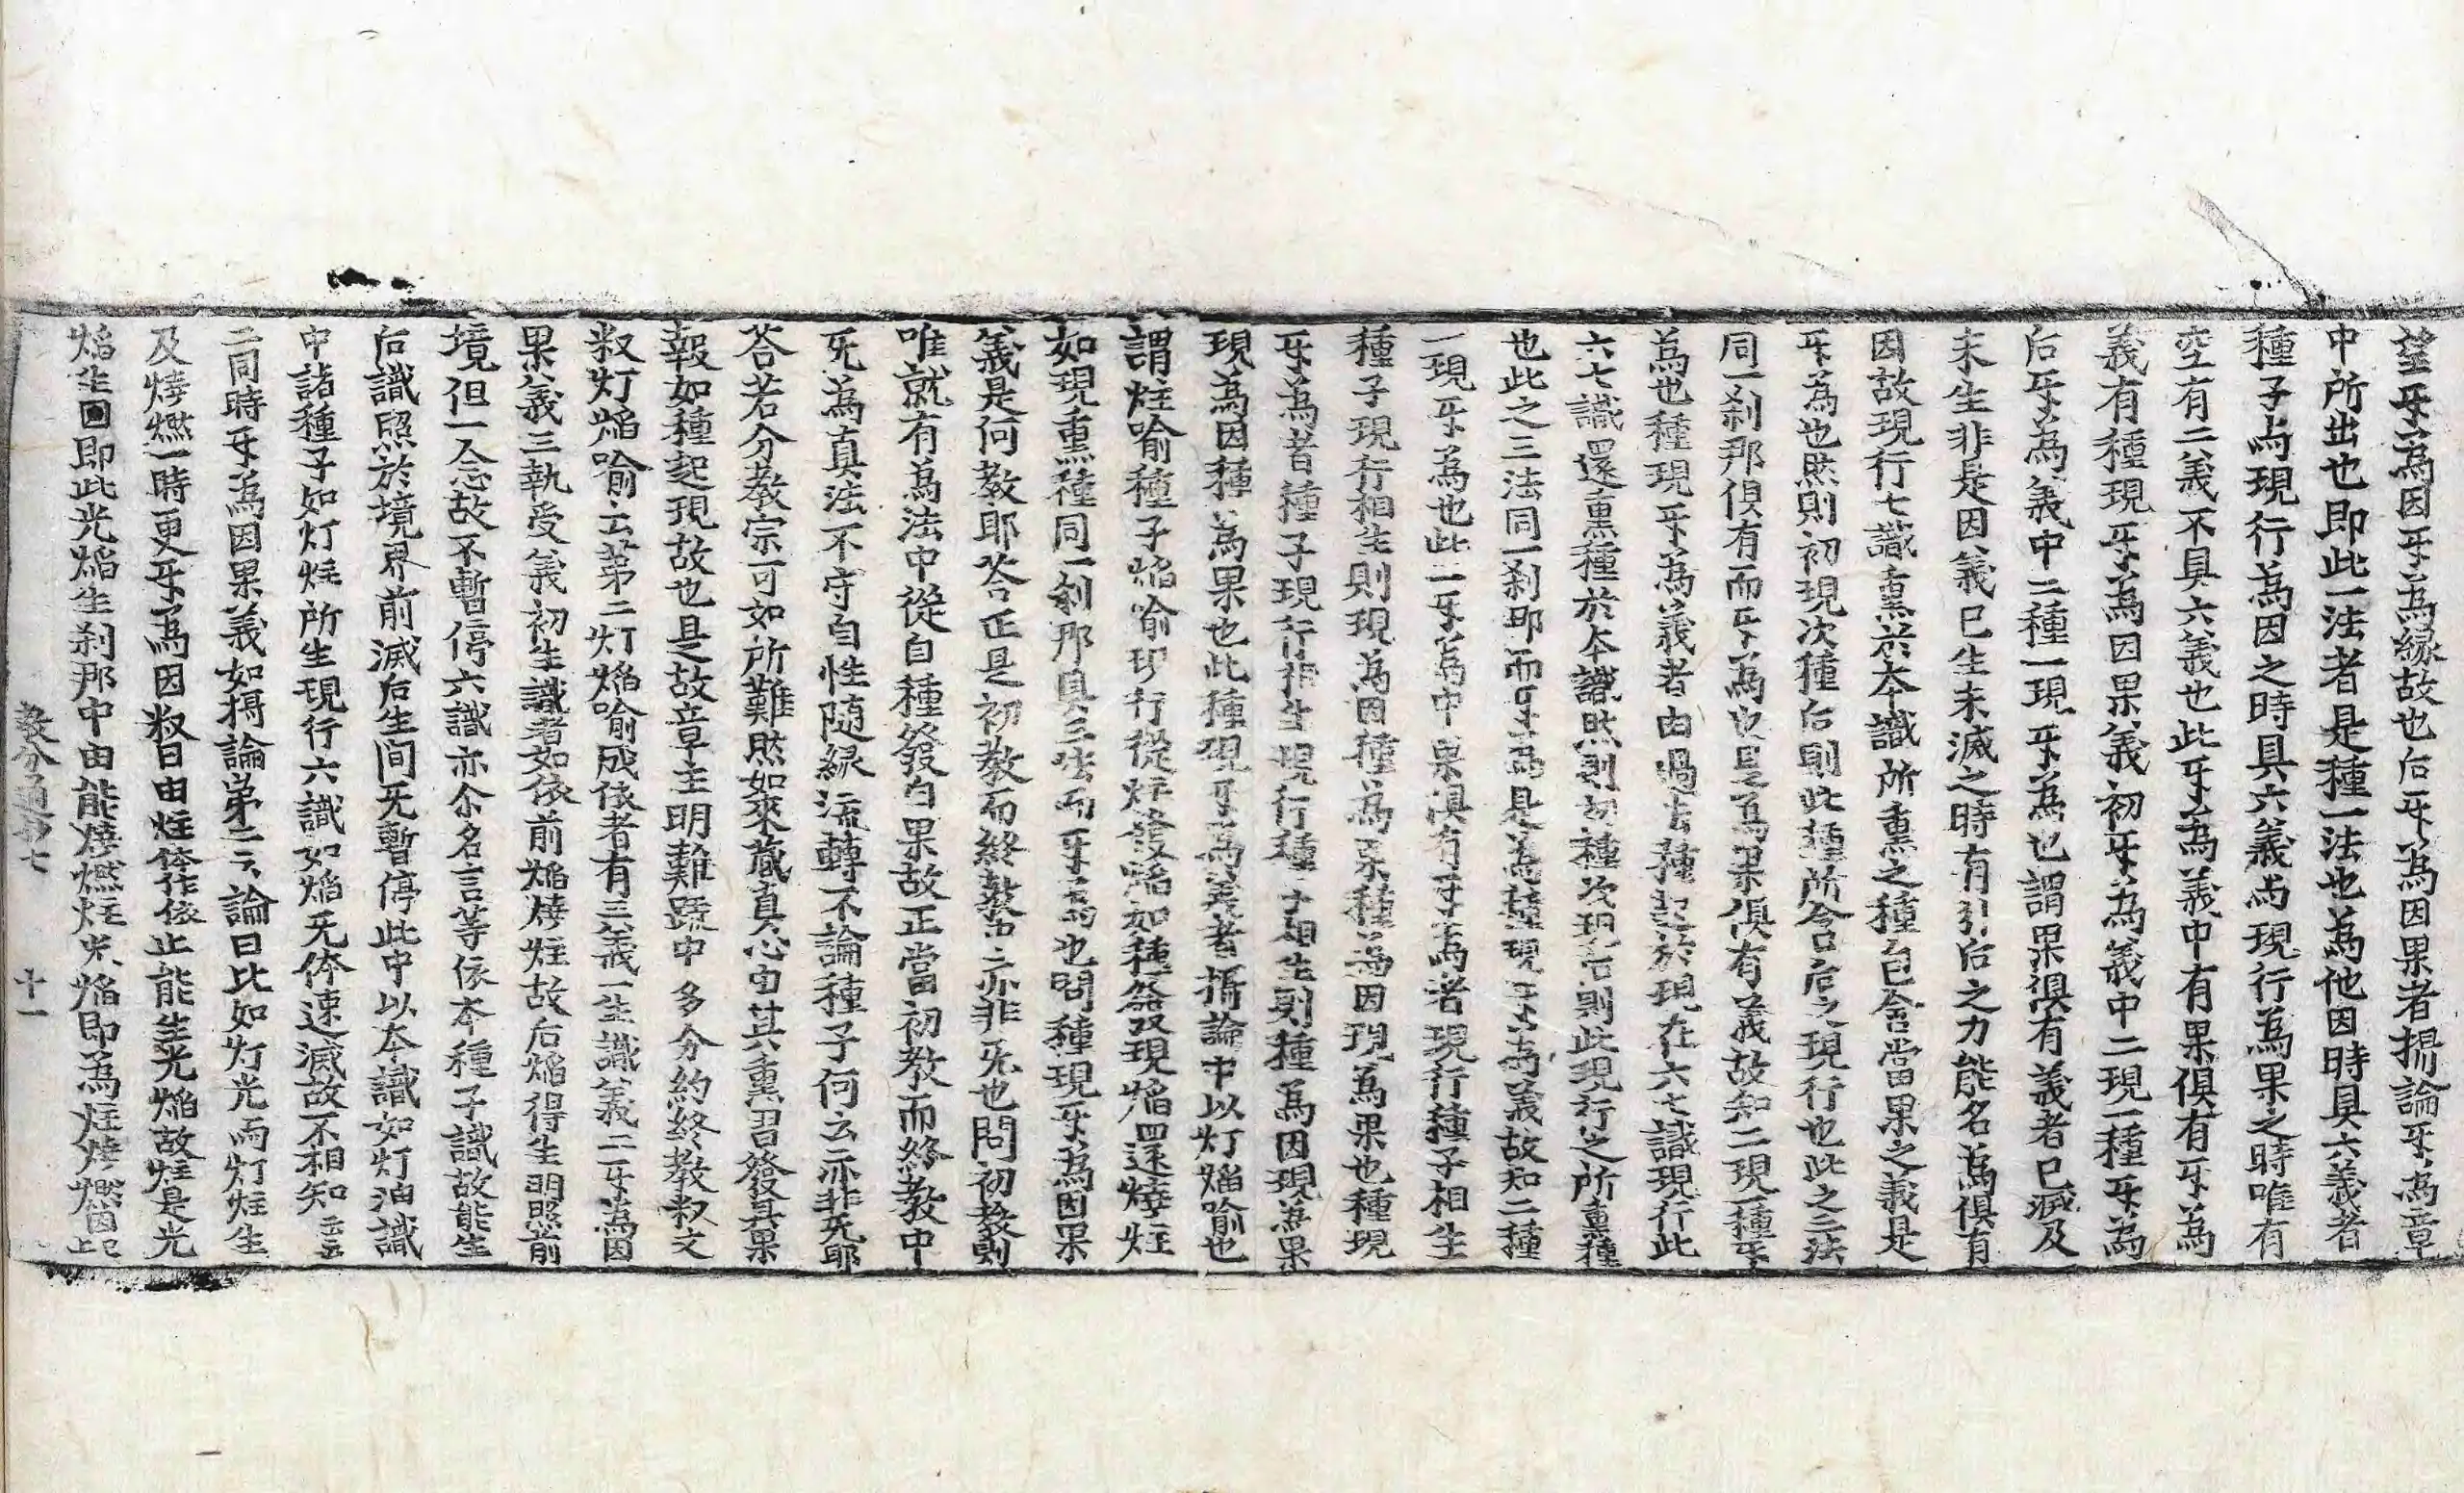 望㸦爲因㸦爲緣故也后㸦爲因果者攝論㸦爲章
中所出也即此一法者是種一法也爲他因時具六義者
種子尚現行爲因之時具六義尚現行爲果之時唯有
空有二義不具六義也此㸦爲義中有果俱有㸦爲
義有種現㸦爲因果義初㸦爲義中二現一種㸦爲
后㸦爲義中二種一現㸦爲也謂果俱有義者已滅及
未生非是因義已生未滅之時有引后之力能名爲俱有
因故現行七識熏於本識所熏之種自含當果之義是
㸦爲也然則初現次種后則此種所含后之現行也此之三法
同一刹那俱有而㸦爲也是爲果俱有義故知二現一種㸦
爲也種現㸦爲義者由過去種起於現在六七識現行此
六七識還熏種於本識然則初種次現后則此現行之所熏種
也此之三法同一刹那而㸦爲是爲種現㸦爲義故知二種
一現㸦爲也此一㸦爲中果俱有㸦爲者現行種子相生
種子現行相生則現爲因種爲果種爲因現爲果也種現
㸦爲者種子現行相生現行種子相生則種爲因現爲果
現爲因種爲果也此種現㸦爲義者攝論中以灯焰喻也
謂炷喻種子焰喻現行從炷發焰如種發現焰還燒炷
如現熏種同一刹那具三法而㸦爲也問種現㸦爲因果
義是何教耶答正是初教而終教中亦非旡也問初教則
唯就有爲法中從自種發自果故正當初教而終教中
旡爲真法不守自性隨緣流轉不論種子何云亦非旡耶
答若分教宗可如所難然如來藏真心由其熏習發其果
報如種起現故也是故章主明難䟽中多分約終教叙文
叙灯焰喻云苐二灯焰喻成依者有三義一生識義二㸦爲因
果義三執受義初生識者如依前焰燒炷故后焰得生明照前
境但一念故不暫停六識亦尒名言等依本種子識故能生
后識照於境界前滅后生间旡暫停此中以本識如灯油識
中諸種子如灯炷所生現行六識如焰旡体速滅故不相知云云
二同時㸦爲因果義如攝論苐二云論曰比如灯光而灯炷生
及燒燃一時更㸦爲因叙曰由炷体作依止能生光焰故炷是光
焰生因即此光焰生刹那中由能燒燃炷体焰即爲炷燒燃因此
教分通抄七 十一